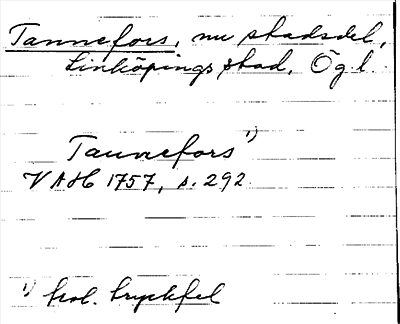 Tannefors, nu stadsdel,
Linköpings stad, Ögl.
Taunefors 1)
VAH 1757, s. 292
1) trol. tryckfel